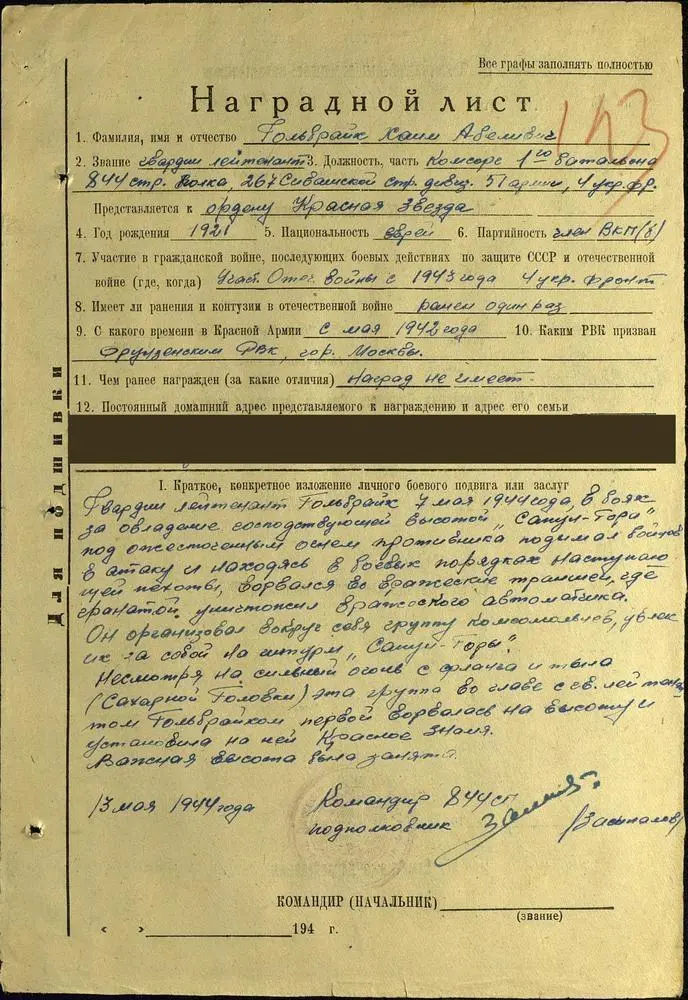 Все графы заполнять полностью
Наградной лист
143
1. Фамилия, имя и отчество Гольбрайх Хаим Абелевич
2. Звание гвардии лейтенант 3. Должность, часть Комсорг 1го батальона
844 стр. полка, 267 Сивашской стр. дивиз. 51 армии, 4 укр. фр.
Представляется к ордену Красная Звезда
4. Год рождения 1921 5. Национальность еврей 6. Партийность член ВКП(б)
7. Участие в гражданской войне, последующих боевых действиях по защите СССР и отечественной
войне (где, когда) Участ. Отеч. войны с 1943 года 4 укр. фронт
8. Имеет ли ранения и контузии в отечественной войне ранен один раз
9. С какого времени в Красной Армии с мая 1942 года 10. Каким РВК призван
Фрунзенским РВК, гор. Москвы.
11. Чем ранее награжден (за какие отличия) наград не имеет.
12. Постоянный домашний адрес представляемого к награждению и адрес его семьи
Для подшивки
I. Краткое, конкретное изложение личного боевого подвига или заслуг
Гвардии лейтенант Гольбрайх 7 мая 1944 года, в боях
за овладение господствующей высотой „Сапун-Гора"
под ожесточенным огнем противника поднимал бойцов
в атаку и находясь в боевых порядках наступаю
щей пехоты, ворвался во вражеские траншеи, где
гранатой уничтожил вражеского автоматчика.
Он организовал вокруг себя группу комсомольцев, увлек
их за собой на штурм „Сапун-Горы".
Несмотря на сильный огонь с фланга и тыла
(Сахарной Головки) эта группа во главе с гв. лейтенан
том Гольбрайхом первой ворвалась на высоту и
установила на ней Красное Знамя.
Важная высота была занята.
13 мая 1944 года Командир 844 сп
подполковник
КОМАНДИР (НАЧАЛЬНИК)
(звание)
« » 194 г.